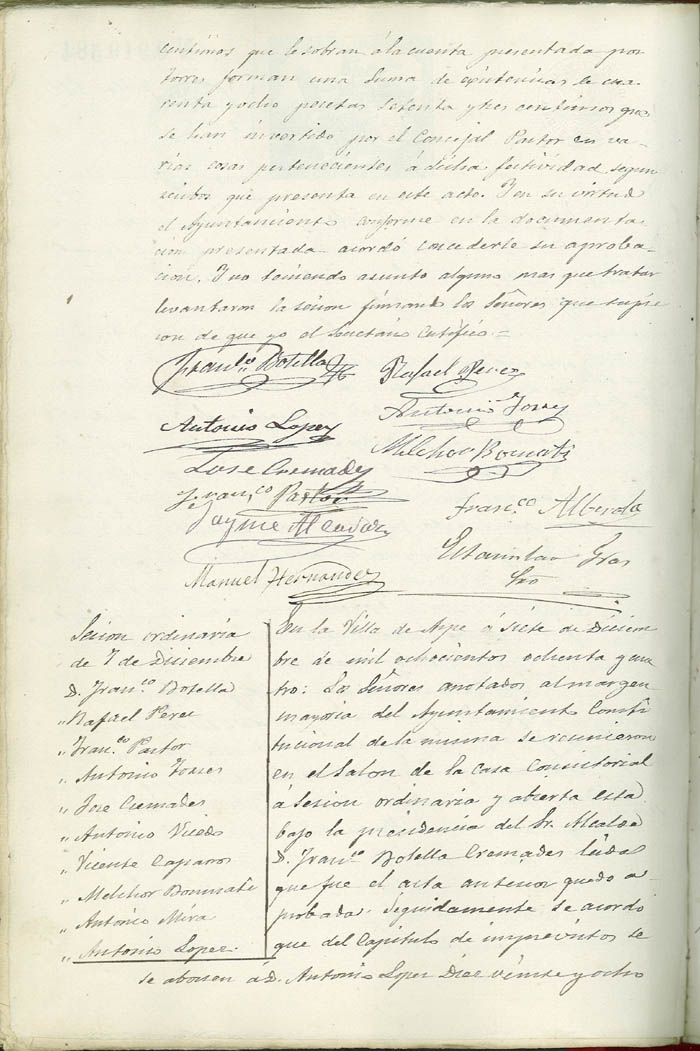 centimos que le sobran á la cuenta presentada por
Torres forman una suma de existencias de cua-
renta y ocho pesetas setenta y tres centimos que
se han invertido por el Concejal Pastor en va-
rias cosas pertenecientes á dicha festividad segun
recibos que presenta en este acto. Y en su virtud
el Ayuntamiento conforme en la documenta-
cion presentada acordó concederle su aproba-
cion. Y no teniendo asunto alguno mas que tratar
levantaron la sesion firmando los Señores que supie-
ron de que yo el Secretario Certifico =
Franco Botella Rafael Perez
Antonio Lopez Antonio Torres
Melchor Bonmati
Jose Cremades
Franco Pastor
Jayme Alcaraz Franco Alberola
Manuel Hernandez Estanislao Gras
Srio
Sesion ordinaria
de 7 de Diciembre
D. Franco Botella
" Rafael Perez
" Franco Pastor
" Antonio Torres
" Jose Cremades
" Antonio Vicedo
" Vicente Caparros
" Melchor Bonmati
" Antonio Mira
" Antonio Lopez
En la Villa de Aspe á siete de Diciem-
bre de mil ochocientos ochenta y cua-
tro: Los Señores anotados al margen
mayoria del Ayuntamiento Consti-
tucional de la misma se reunieron
en el Salon de la Casa Consistorial
á Sesion ordinaria y abierta esta
bajo la presidencia del Sr. Alcalde
D. Franco Botella Cremades leida
que fue el acta anterior quedo a-
probada. Seguidamente se acordo
que del Capitulo de imprevistos se
se abonen á D. Antonio Lopez Diez veinte y ocho